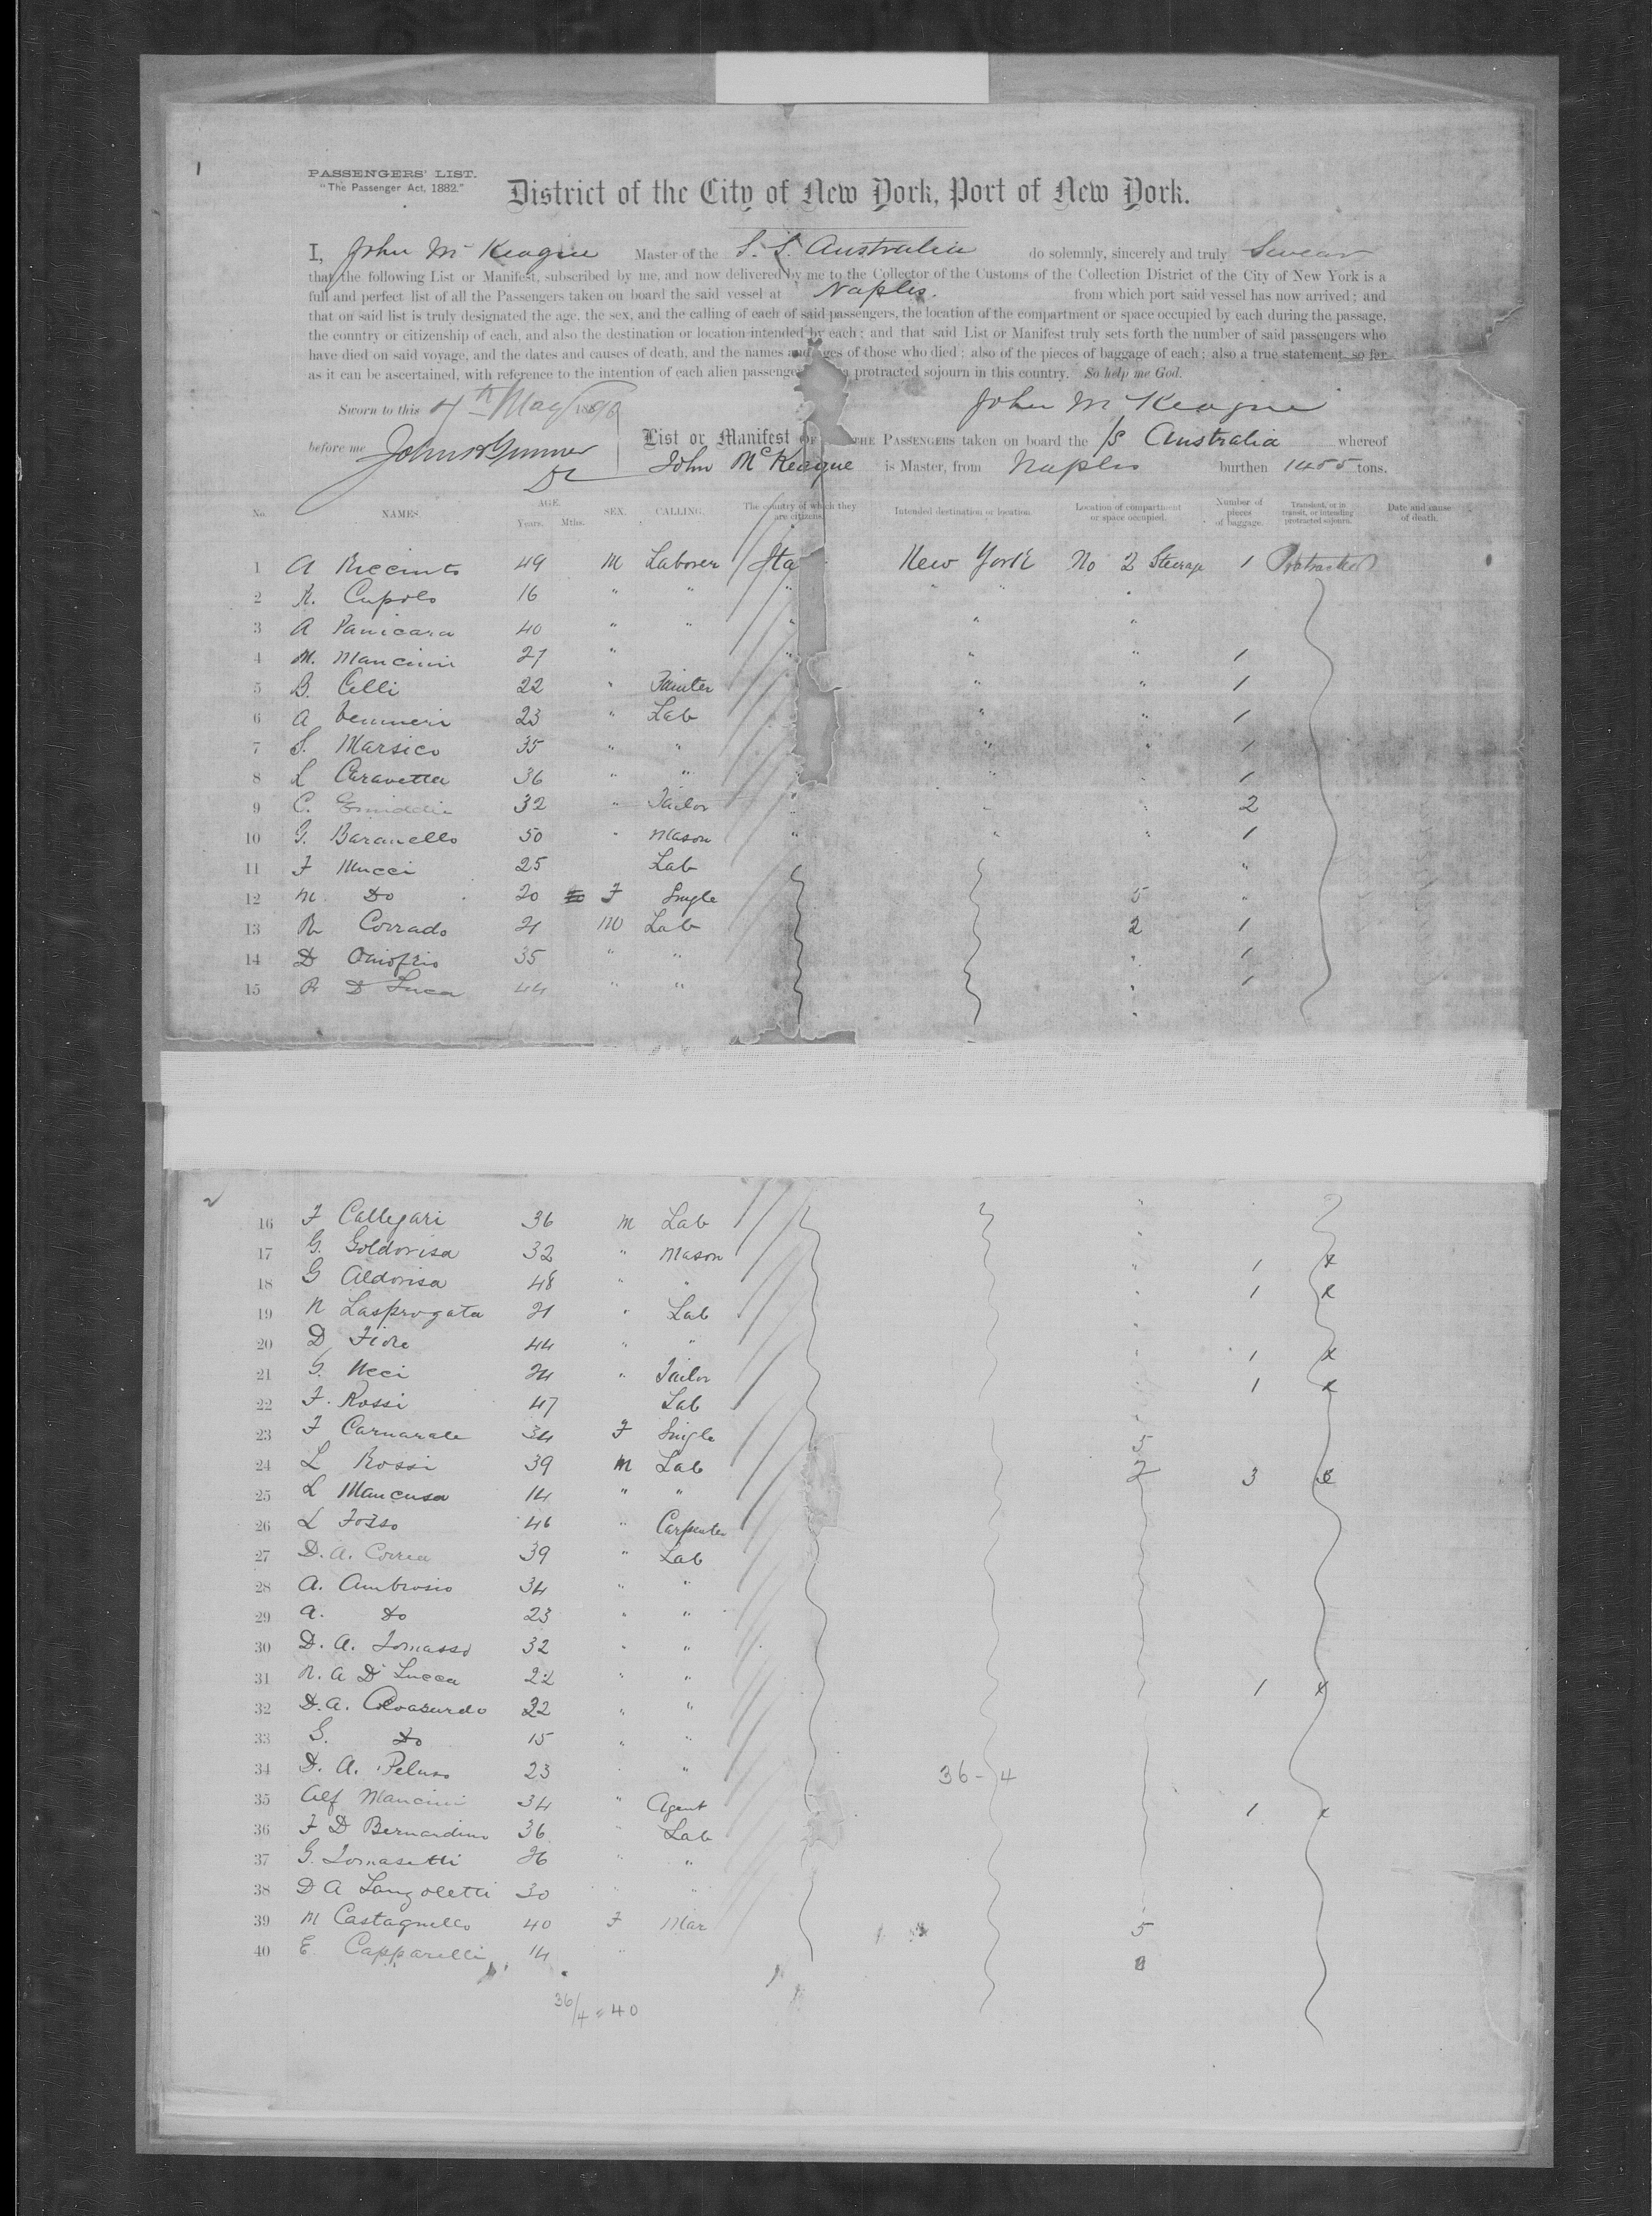 1
PASSENGERS' LIST.
"The Passenger Act, 1882."
District of the City of New York, Port of New York.
I, John McKeague Master of the S.S. Australia do solemnly, sincerely and truly Swear
that the following List or Manifest, subscribed by me, and now delivered by me to the Collector of the Customs of the Collection District of the City of New York is a
full and perfect list of all the Passengers taken on board the said vessel at Naples. from which port said vessel has now arrived; and
that on said list is truly designated the age, the sex, and the calling of each of said passengers, the location of the compartment or space occupied by each during the passage,
the country or citizenship of each, and also the destination or location intended by each; and that said List or Manifest truly sets forth the number of said passengers who
have died on said voyage, and the dates and causes of death, and the names and ages of those who died; also of the pieces of baggage of each; also a true statement, so far
as it can be ascertained, with reference to the intention of each alien passenger protracted sojourn in this country. So help me God.
Sworn to this 4th May 1890 John McKeague
before me List or Manifest OF THE PASSENGERS taken on board the S/S Australia whereof
John McKeague is Master, from Naples burthen 1455 tons.
No. NAMES. AGE. Years. Mths. SEX. CALLING. The country of which they are citizens. Intended destination or location. Location of compartment or space occupied. Number of pieces of baggage. Transient, or in transit, or intending protracted sojourn. Date and cause of death.
1 A 49 M Laborer Ita New York No 2 Steerage 1 Protracted
2 R. Cupolo 16 " " " " " "
3 A Panicara 40 " " " " "
4 M. Mancini 27 " " " " 1
5 B. Celli 22 " Painter " " 1
6 A 23 " Lab " " 1
7 S. Marsico 35 " " " " 1
8 L Caravetta 36 " " " 1
9 C. 32 " Tailor " " " 2
10 G. Baranello 50 " Mason " " " 1
11 F Mucci 25 Lab "
12 M. Do 20 F Single 5 "
13 R Corrado 21 M Lab 2 1
14 D Oniofrio 35 " " " 1
15 R D Luca 44 " " " 1
2
16 F Callegari 36 M Lab "
17 G. Goldorisa 32 " Mason " 1 x
18 G Aldorisa 48 " " " 1 x
19 N Lasprogata 21 " Lab "
20 D Fiore 44 " " " 1 x
21 G. Neci 24 " Tailor " 1 x
22 F. Rossi 47 Lab "
23 F Carnarale 34 F Single 5
24 L Rossi 39 M Lab 2 3 x
25 L Mancusa 14 " "
26 L Fosso 46 " Carpenter
27 D. A. Correa 39 " Lab
28 A. Ambrosio 34 " "
29 A. Do 23 " "
30 D. A. Tomasso 32 " "
31 N. A D Lucca 22 " " 1 x
32 D. A. 22 " "
33 G. Do 15 " "
34 D. A. Peluso 23 " " 36 - 4
35 Alf Mancini 34 " Agent 1 x
36 F D Bernardino 36 " Lab
37 G. Tomasetti 26 " "
38 D A Langoletti 30 " "
39 M Castagnello 40 F Mar 5
40 E Capparelli 14 "
36/4 = 40